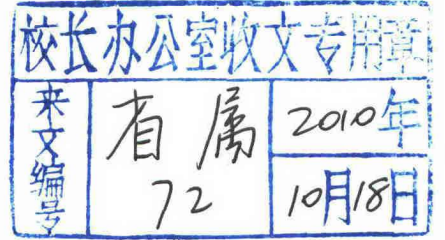 校长办公室收文专用章
来文编号
省属
72
2010年
10月18日